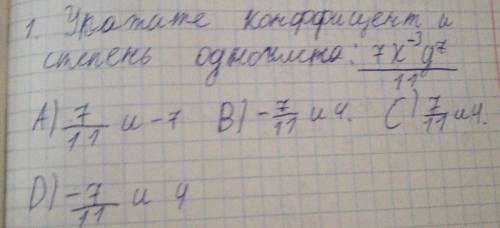 1. Укажите конффицент и
степень одночлена: 7x⁻³y⁷/11
A) 7/11 и -7 B) -7/11 и 4. C) 7/11 и 4.
D) -7/11 и 4